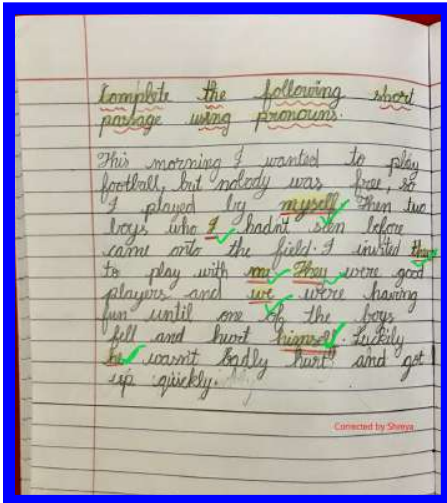 Complete the following short
passage using pronouns.
This morning I wanted to play
football, but nobody was free, so
I played by myself. Then two
boys who I hadnt seen before
came onto the field. I invited them
to play with me. They were good
players and we were having
fun until one of the boys
fell and hurt himself. Luckily
he wasnt badly hurt and got
up quickly.
Corrected by Shreya